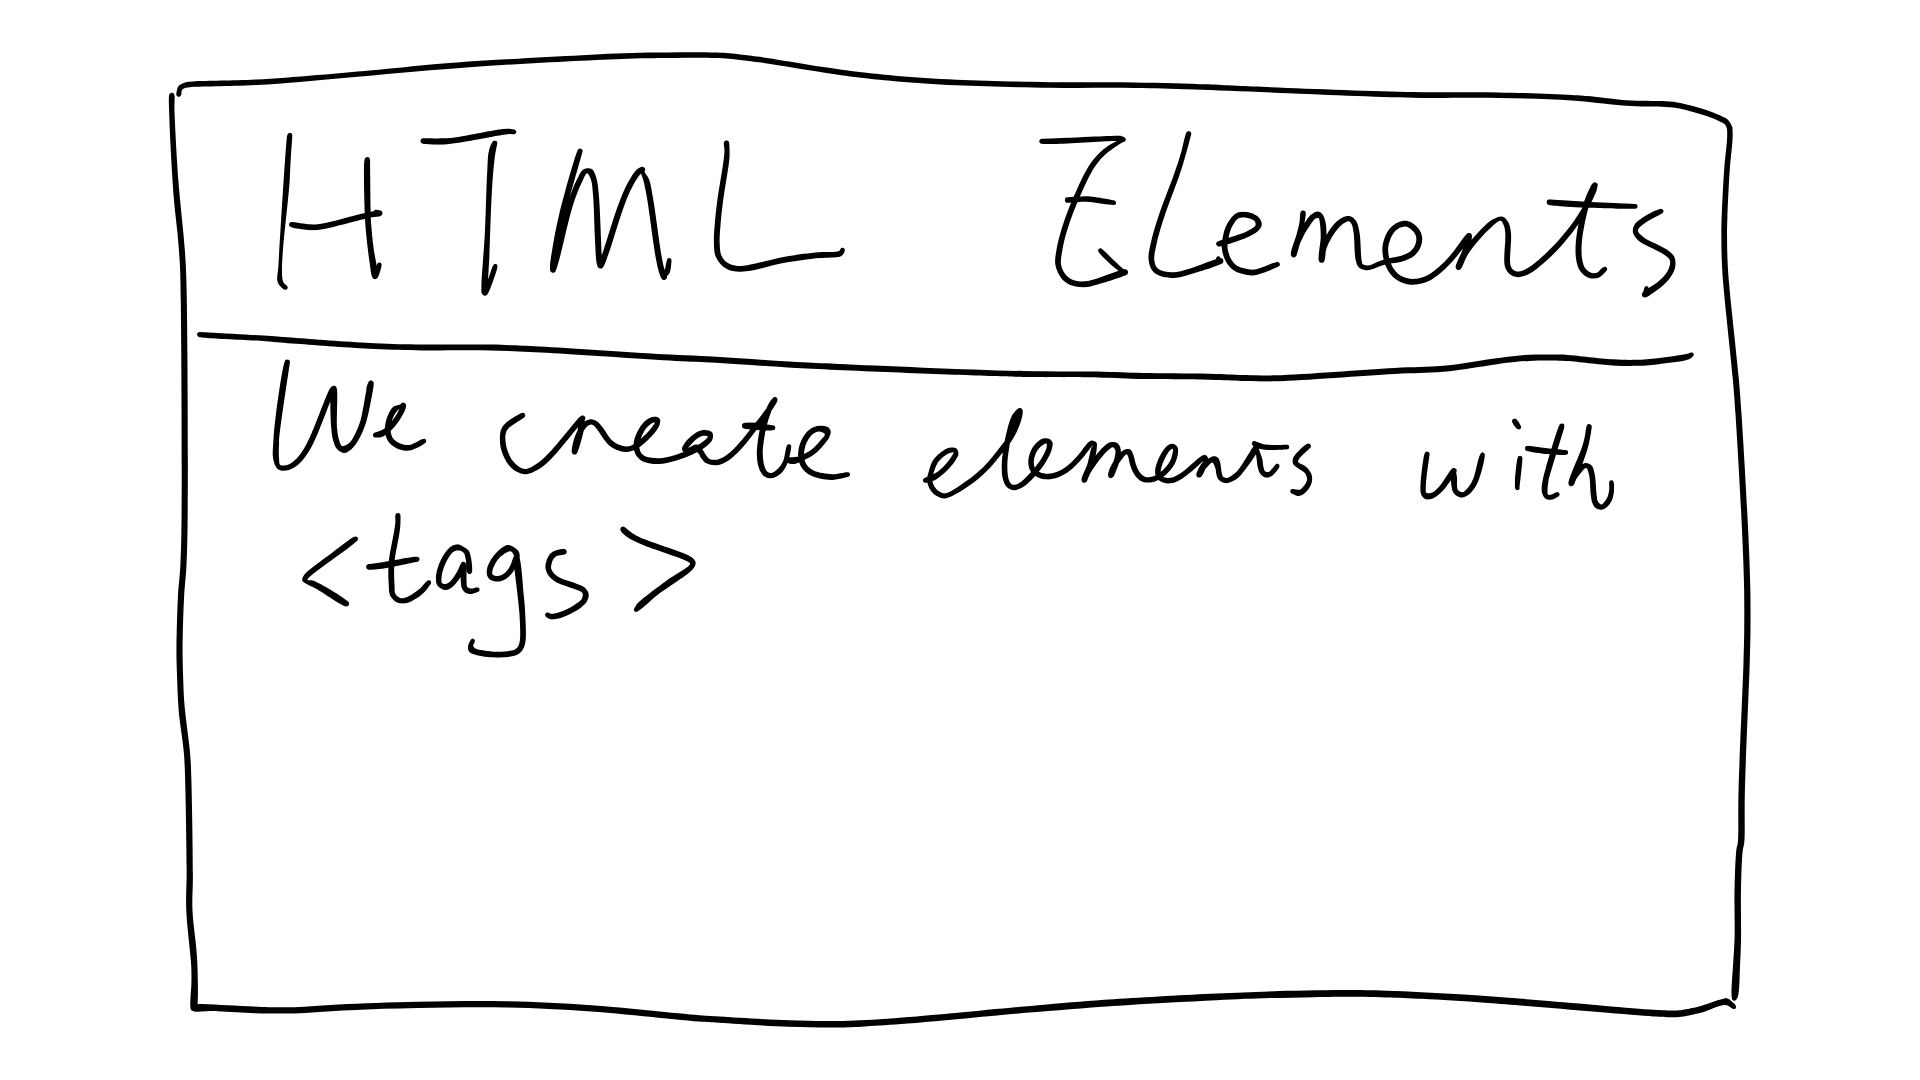 HTML Elements
We create elements with
<tags>